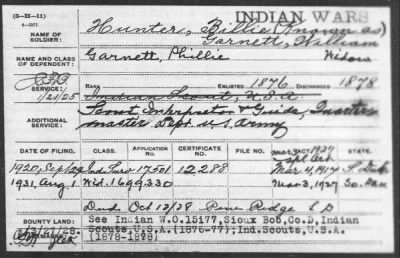 (3-III-11)
INDIAN WARS
NAME OF SOLDIER:
Hunter, Billie (Known as)
Garnett, William
NAME AND CLASS OF DEPENDENT:
Garnett, Phillie Widow
SERVICE:
1/21/25
RANK ENLISTED 1876 DISCHARGED 1878
Indian Scout, U.S.A.
ADDITIONAL SERVICE:
Scout Interpreter & Guide, Quarter
master Dept. U.S. Army
DATE OF FILING. CLASS. APPLICATION NO. CERTIFICATE NO. STATE
1920, Sept 29 Ind Surv 17501 12,288 Mar 4, 1917 S. Dak
1931, Aug. 1 Wid. 1699,330 Mar 3, 1927 So. Dak
Died Oct 12/28 Pine Ridge S D
BOUNTY LAND:
See Indian W.O.15177, Sioux Bob, Co.D, Indian
Scouts, U.S.A. (1876-77); Ind. Scouts, U.S.A.
(1878-1878)